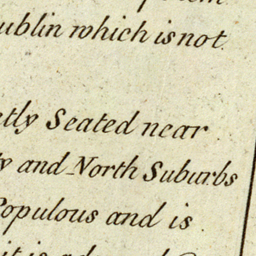 ublin which is not
tly Seated near
y and North Suburbs
Populous and is
it is